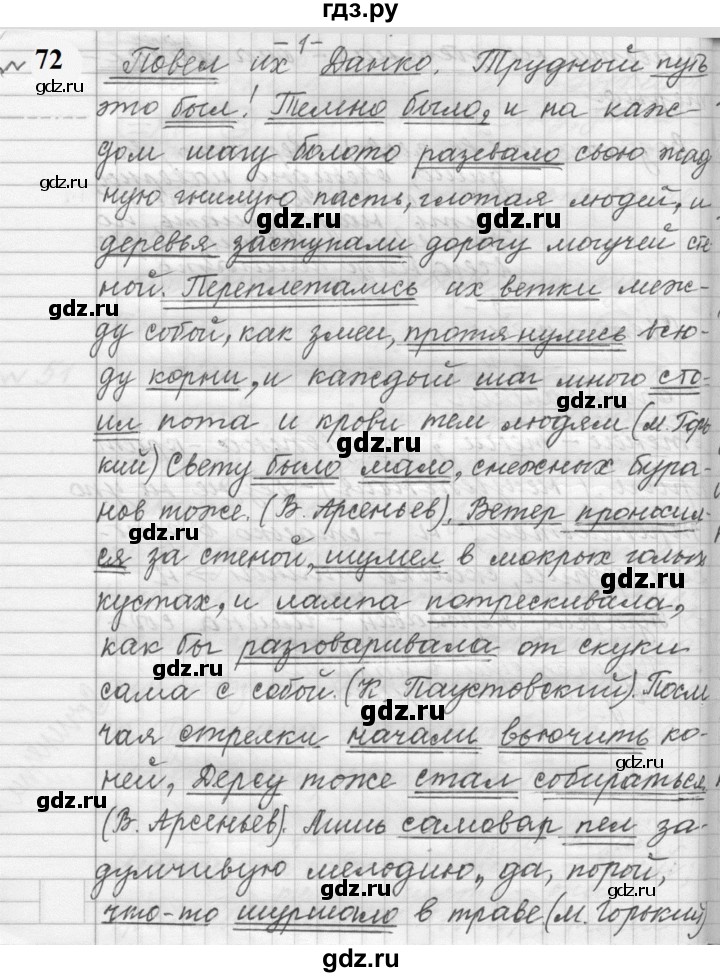 гдз.ру
72
gdz.ru
-1-
Повел их Данко. Трудный путь
это был! Темно было, и на каж-
gdz.ru
дом шагу болото разевало свою жад
gdz.ru
ную гнилую пасть, глотая людей, и
gdz.ru gdz.ru
деревья заступали дорогу могучей сте
ной. Переплетались их ветки меж-
gdz.ru
ду собой, как змеи, протянулись всю-
gdz.ru
ду корни, и каждый шаг много сто-
gdz.ru
ил пота и крови тем людям (М. Горь
gdz.ru
кий) Свету было мало, снежных бура-
нов тоже. (В. Арсеньев). Ветер проносил-
gdz.ru
ся за стеной, шумел в мокрых голых
gdz.ru
кустах, и лампа потрескивала,
как бы разговаривала от скуки
gdz.ru
сама с собой. (К Паустовский).
gdz.ru
чая стрелки начали вьючить ко-
ней, Дерсу тоже стал собираться.
gdz.ru gdz.ru
(В. Арсеньев). Лишь самовар пел за-
думчивую мелодию, да, порой,
gdz.ru
что-то шуршало в траве (М. Горький)
gdz.ru